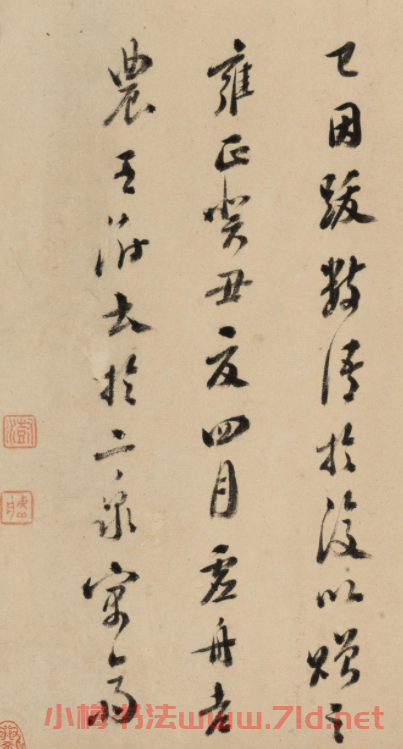 已因跋數語於後以贈之
雍正癸丑夏四月虛舟老
農王澍書於二泉寓齋
澍
小梅书法www.7ld.net